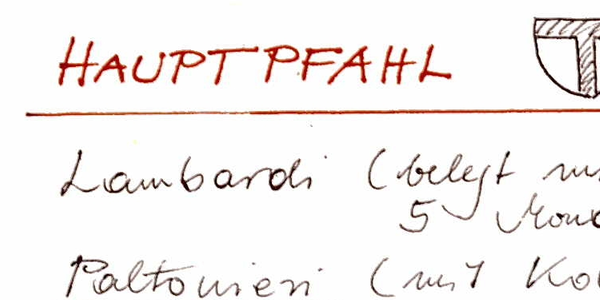 HAUPTPFAHL
Lambardi (belegt
5
Paltonieri (mit